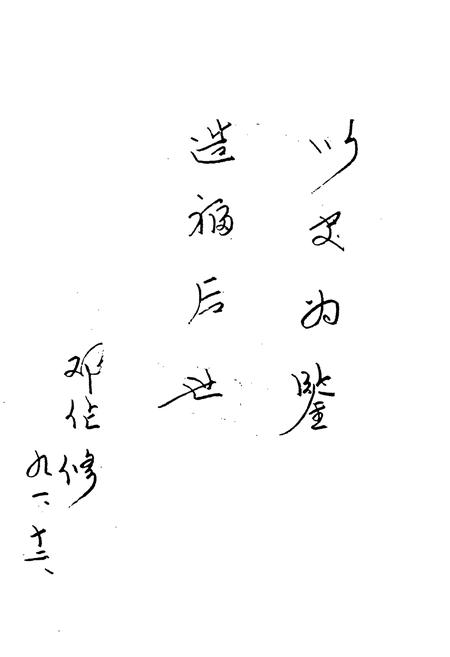 以史为鉴
造福后世
邓作修
九一、十二、